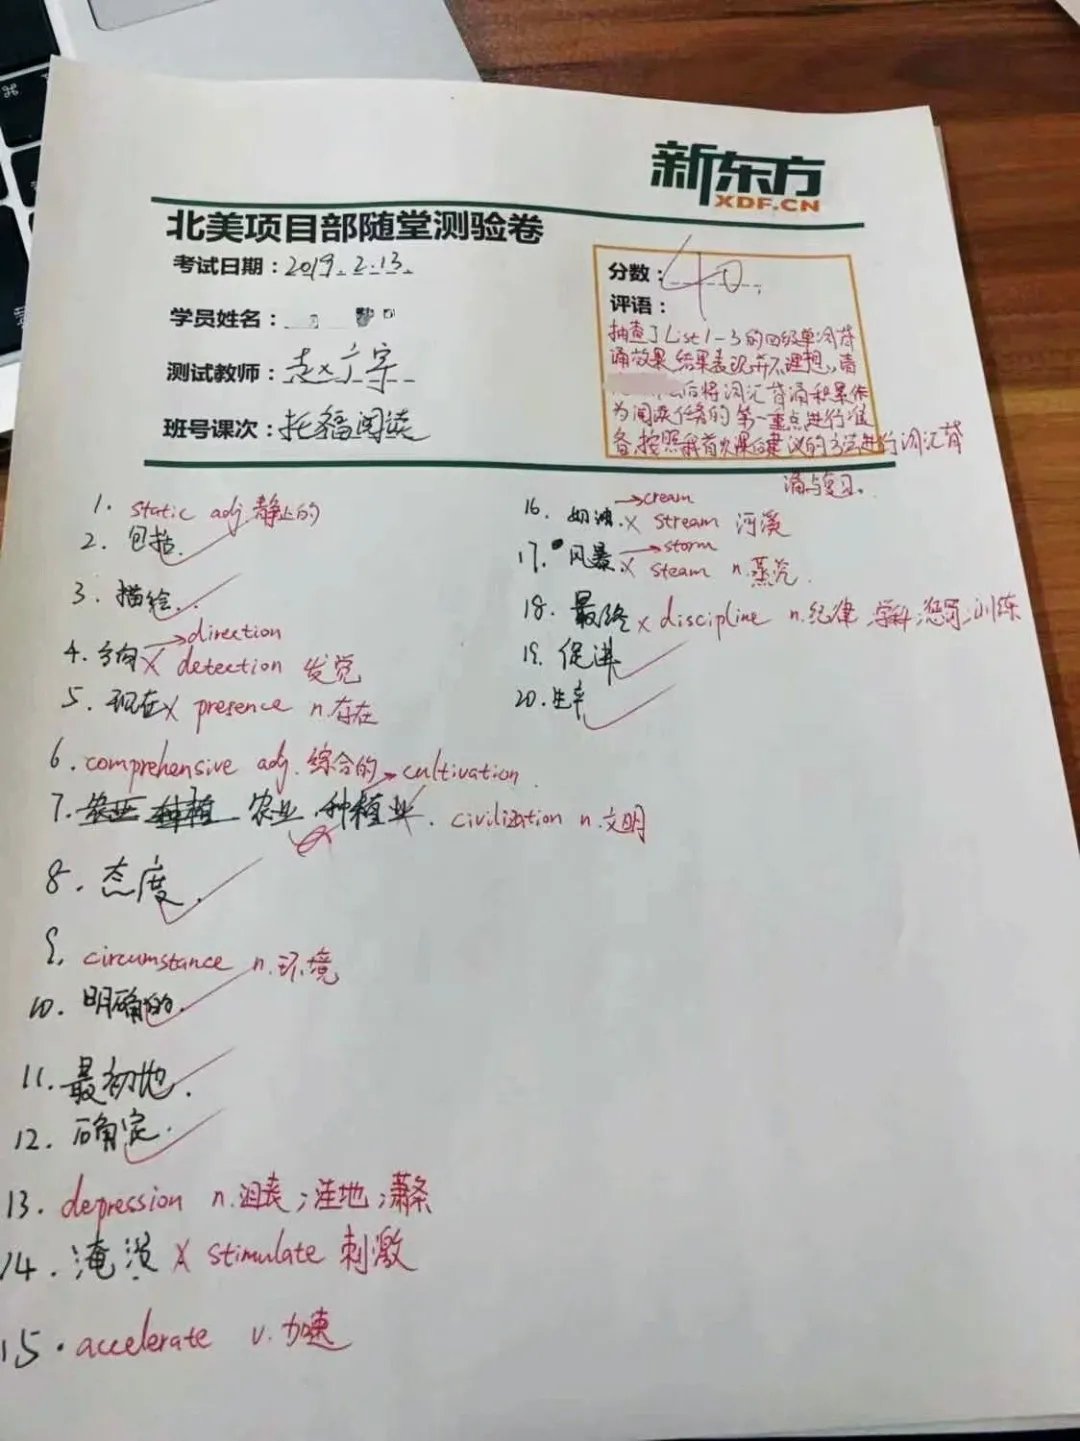 新东方
XDF.CN
北美项目部随堂测验卷
考试日期：2019.2.13.
学员姓名：
测试教师：赵广宗
班号课次：托福阅读
分数：40.
评语：
抽查了List1-3的四级单词背
诵效果,结果表现并不理想,请
后将词汇背诵积累作
为阅读任务的第一重点进行准
备,按照我首次课后建议的方法进行词汇背
诵与复习.
1. static adj 静止的
2. 包括.
3. 描绘.
→direction
4. 方向 X detection 发觉
5. 现在 X presence n.存在
6. comprehensive adj. 综合的
→cultivation.
7. 农业 种植 农业 种植业. civilization n.文明
8. 态度.
9. circumstance n.环境
10. 明确的.
11. 最初地.
12. 确定.
13. depression n.沮丧;洼地;萧条
14. 淹没 X stimulate 刺激
15. accelerate v.加速
→cream
16. 奶油. X stream 河溪
→storm
17. 风暴. X steam n.蒸汽.
18. 最终 X discipline n.纪律;学科;惩罚;训练
19. 促进
20. 生产